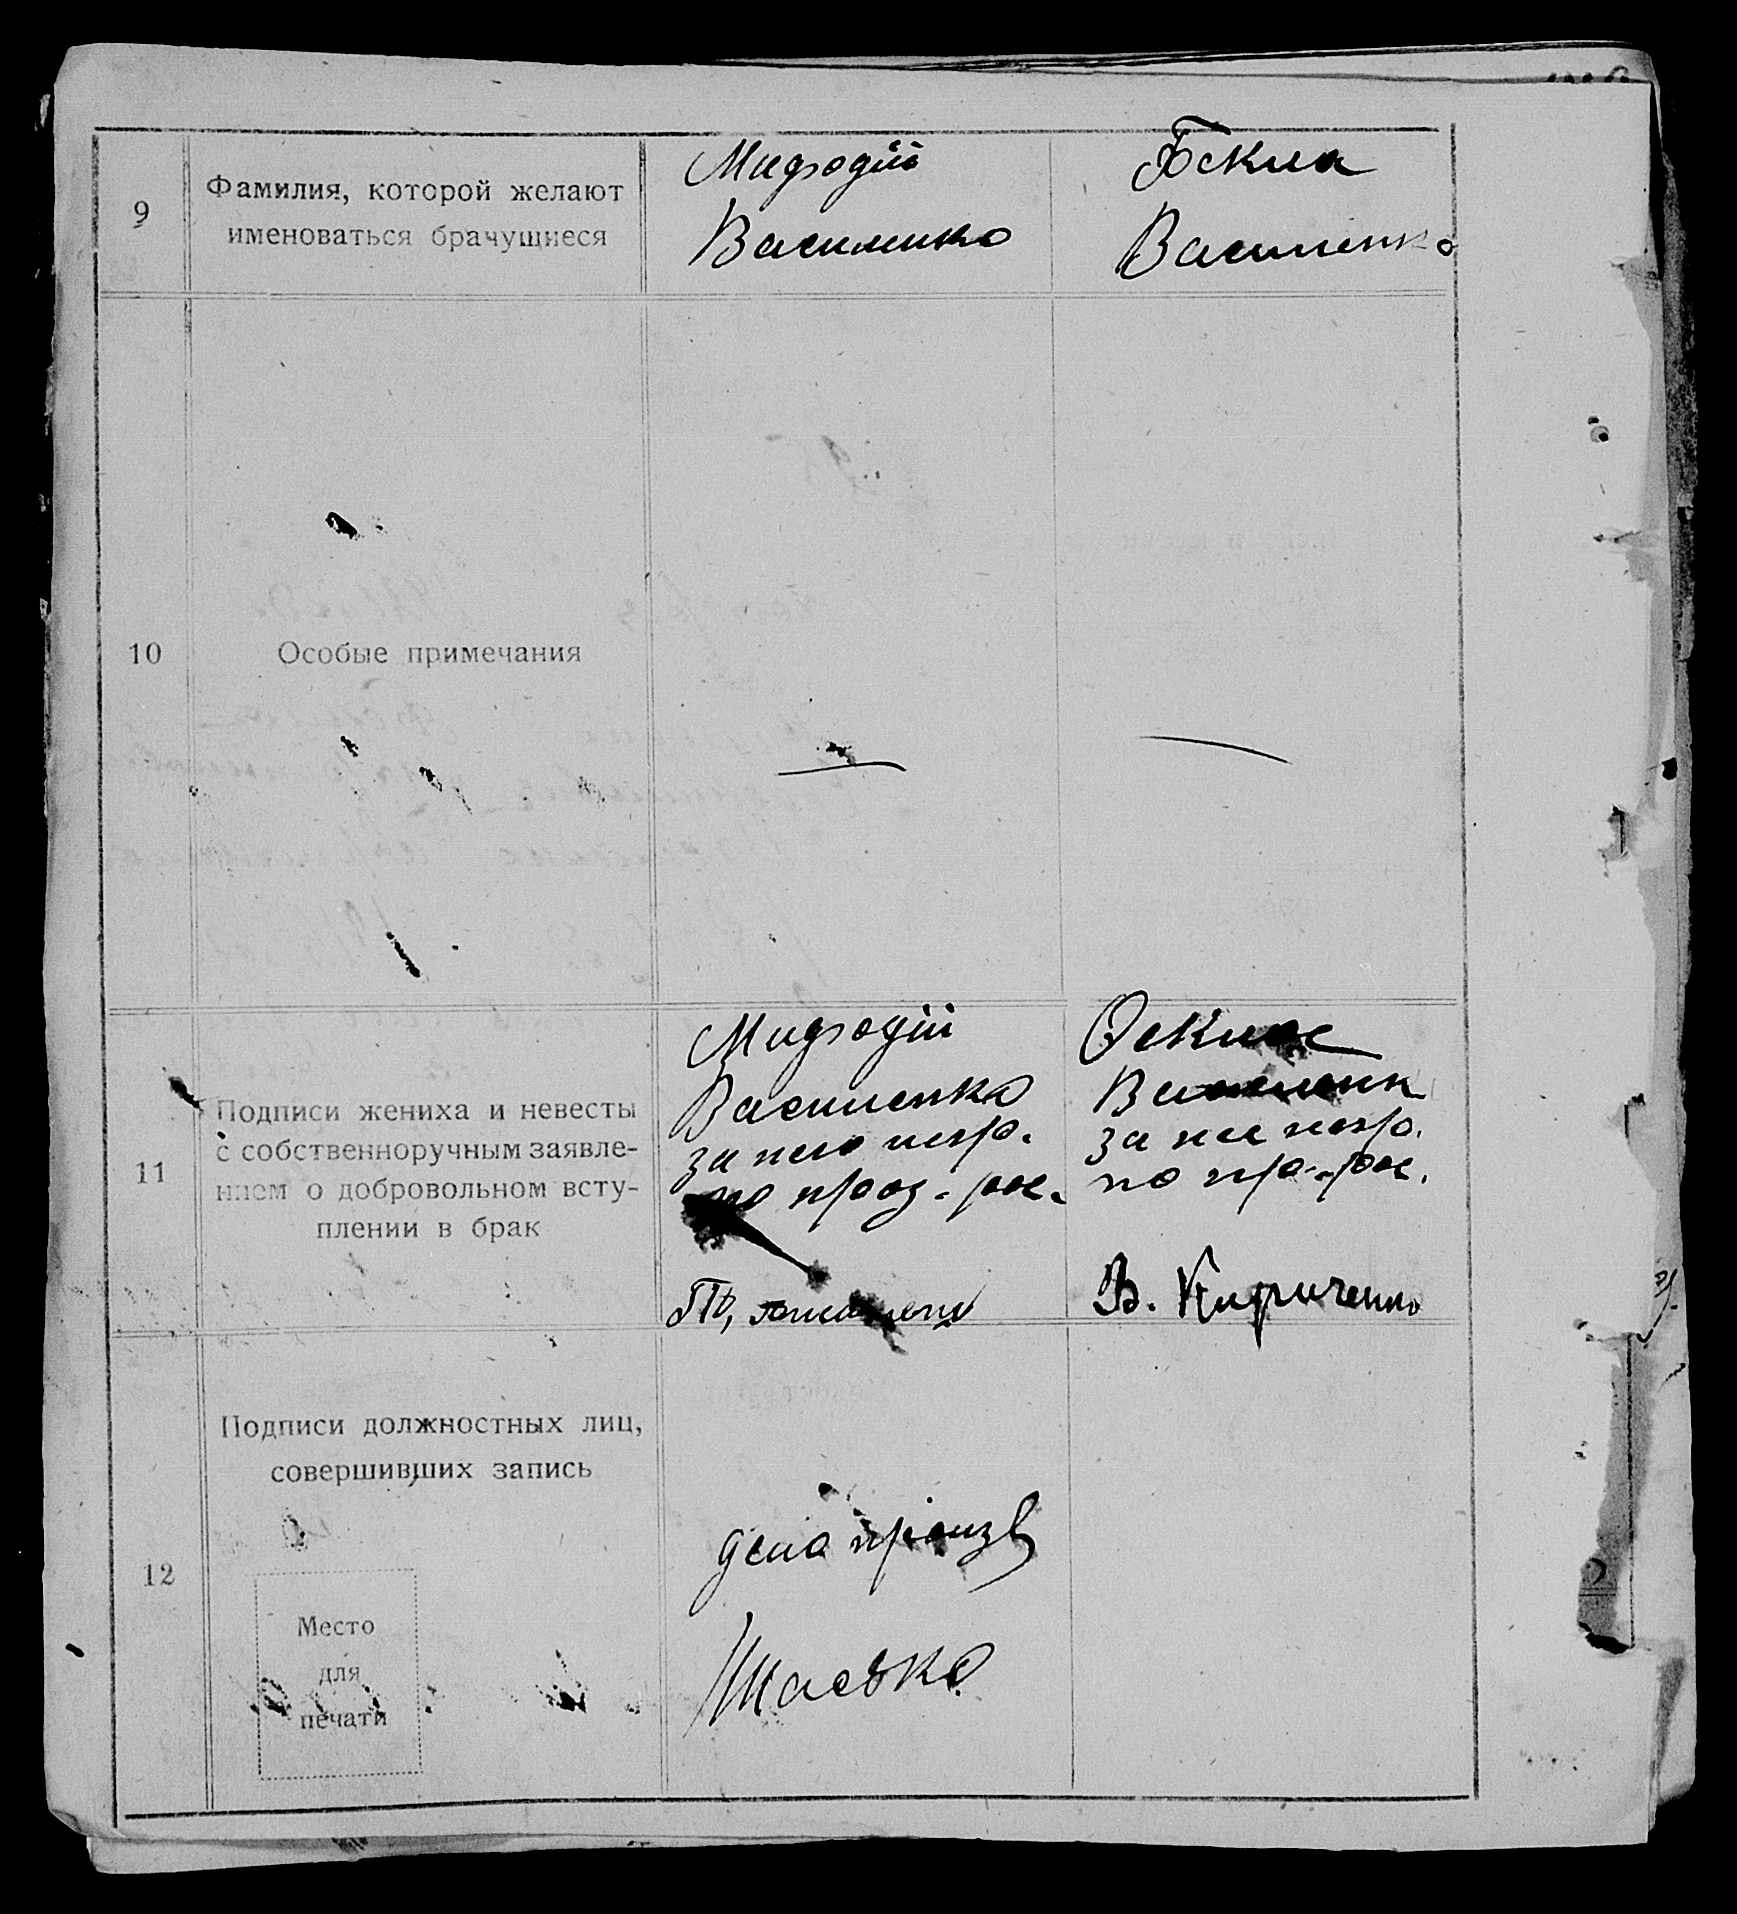 9
Фамилия, которой желают
именоваться брачущиеся
Мифодій
Василенко
Фекла
Василенко
10
Особые примечания
—
—
11
Подписи жениха и невесты
с собственноручным заявле-
нием о добровольном всту-
плении в брак
Мифодій
Василенко
за него негр.
по проз. рос.
Фекла
Василенк
за нее негр.
по пр. рос.
В. Кириченко
12
Подписи должностных лиц,
совершивших запись
Место
для
печати
дела произв